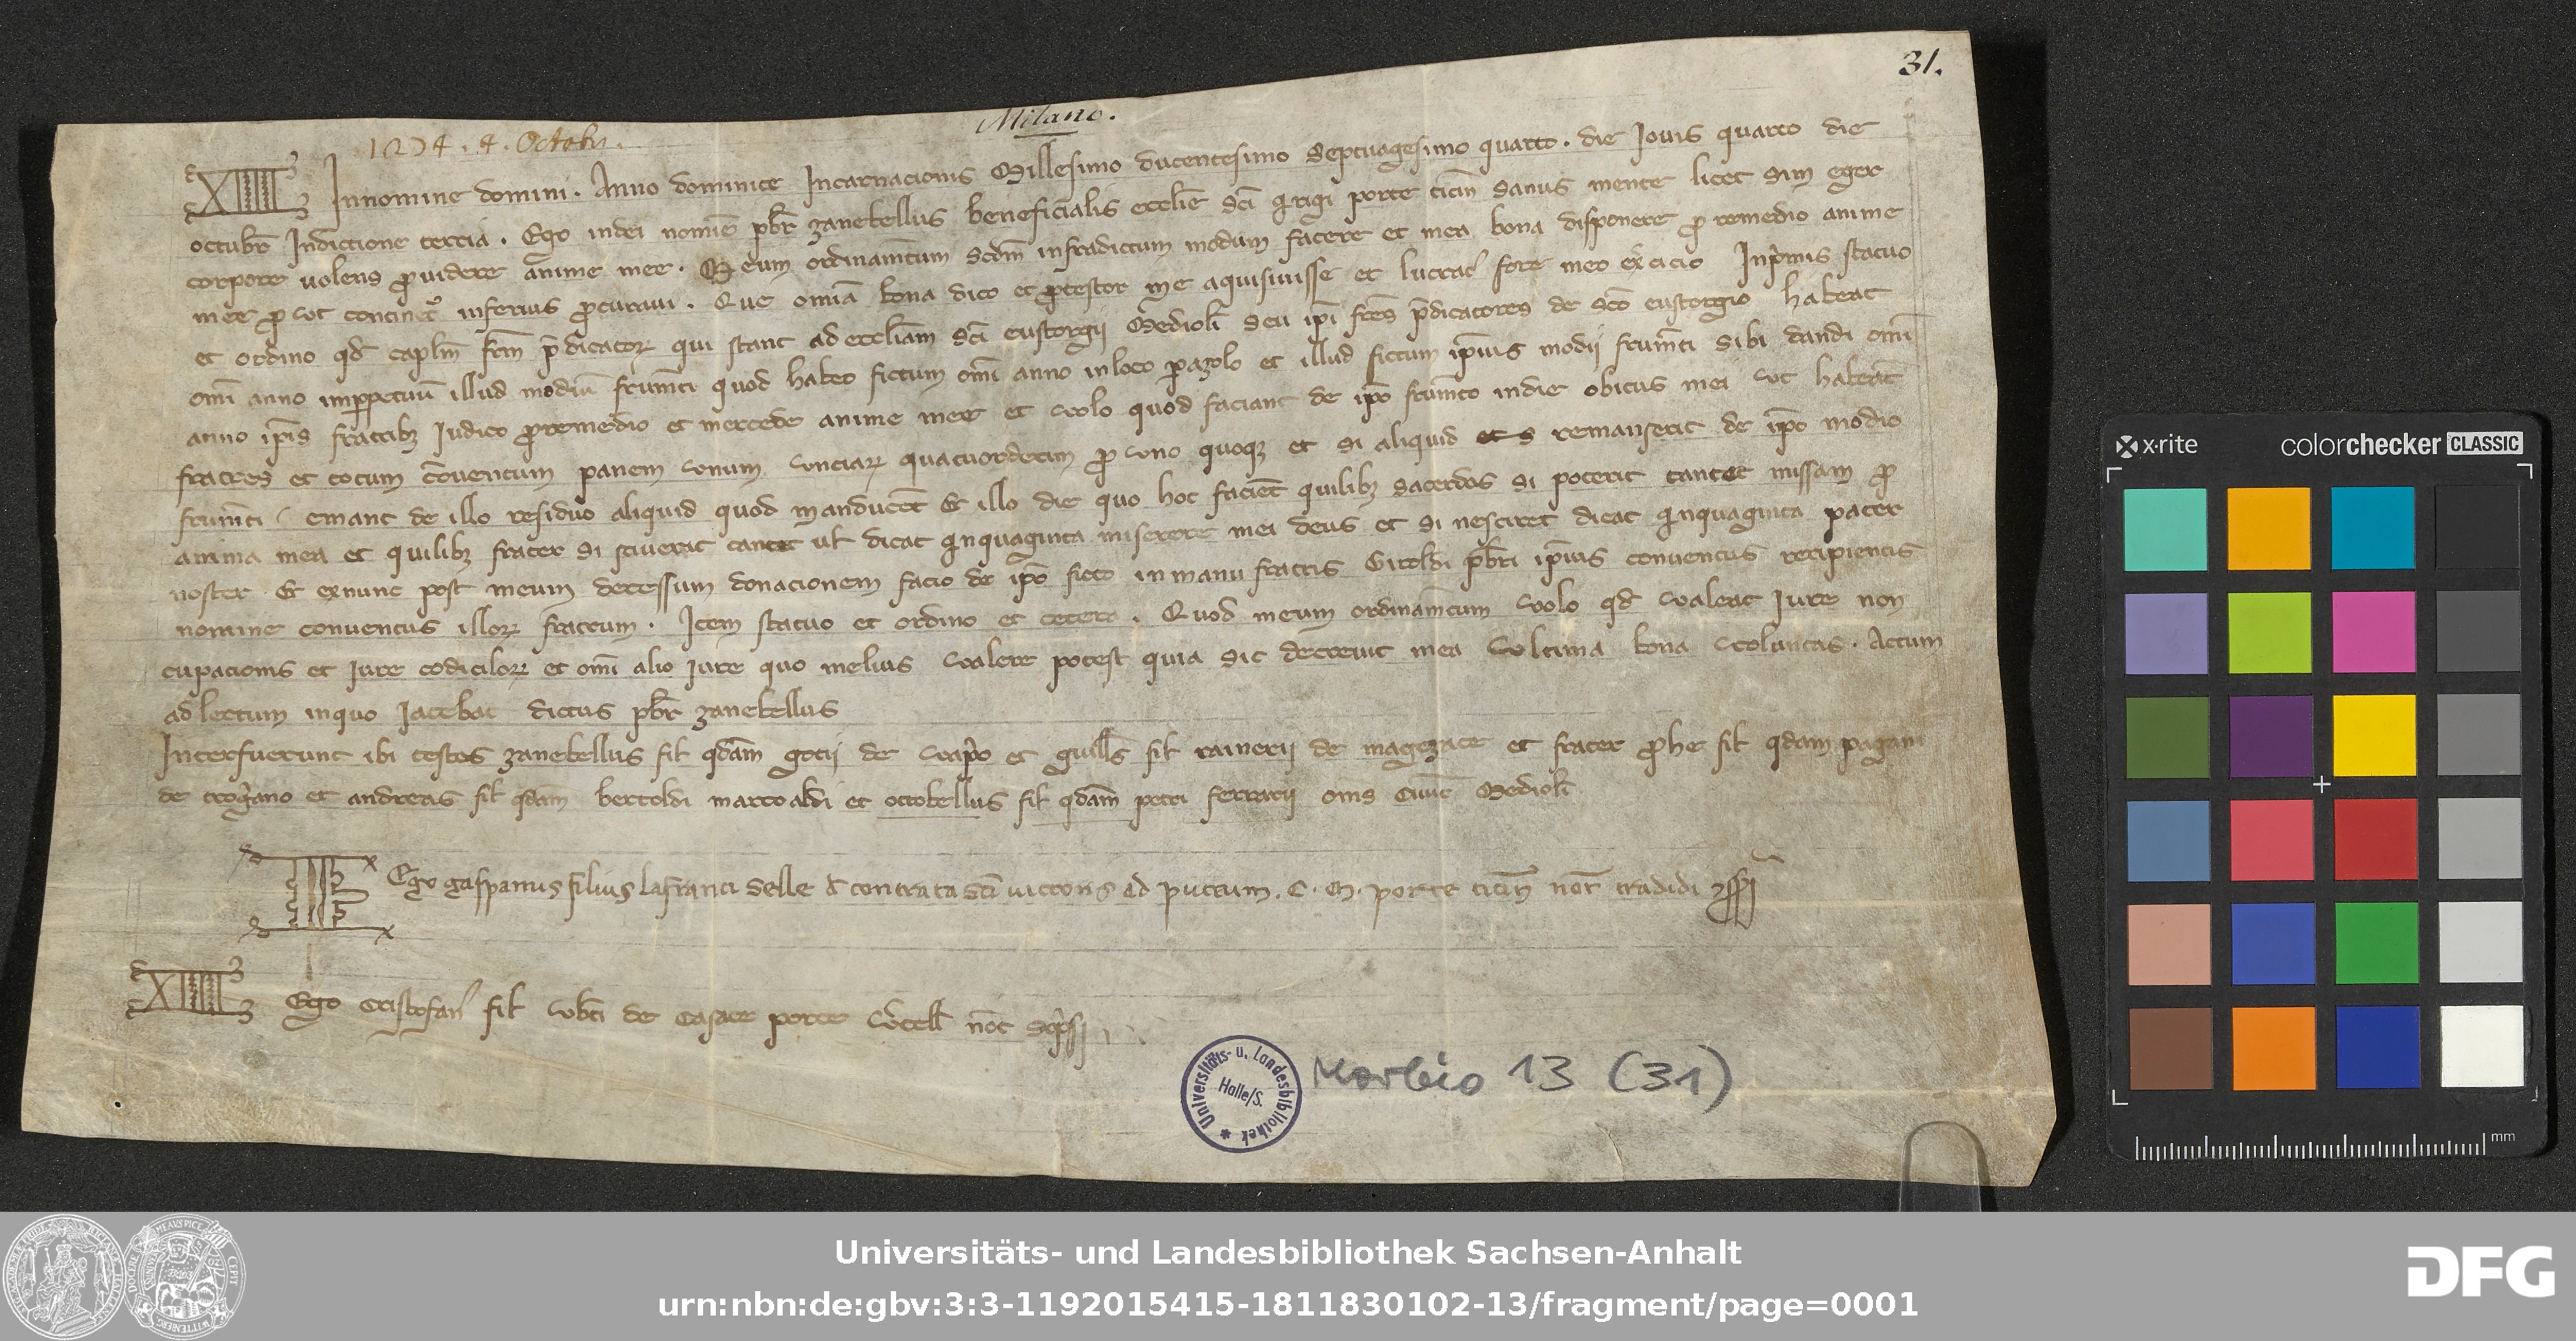 31.
Milano.
1274. 4. Octobr.
Innomine domini. Anno dominice Incarnacionis Millesimo ducentesimo septuagesimo quarto. die Iovis quarto die
octubr̄ Indictione tercia. Ego indei nomīe pb̄r zanebellus beneficialis eccl̄ie sc̄i porte ticin̄ sanus mente licet sim eger
corpore uolens ꝓuidere anime mee. Meum ordinam̄tum scd̄m infradictum modum facere et mea bona disponere ꝓ remedio anime
mee ꝓ ut continet᷑ inferius ꝓcuraui. Que om̄ia bona dico et ꝓtestor me aquisiuisse et fore meo Inp̄mis statuo
et ordino qd̄ capl̄m fr̄m p̄dicatoꝝ qui stant ad eccl̄iam sc̄i eustorgij Mediol̄ seu ip̄i fr̄es p̄dicatores de sc̄o eustorgio habeāt
om̄i anno imꝑpetuū illud modiū frum̄ti quod habeo fictum om̄i anno inloco pazolo et illud fictum ip̄ius modij frum̄ti sibi dandi om̄i
anno ip̄is fratribꝫ Iudico ꝓremedio et mercede anime mee et uolo quod faciant de ip̄o frum̄to indie obitus mei ut habeāt
fratres et totum cōuentum panem unum unciaꝝ quatuordecim ꝓ uno quoqꝫ et si aliquid remanserit de ip̄o modio
frum̄ti emant de illo residuo aliquid quod manducēt Et illo die quo hoc faciēt quilibꝫ sacerdos si poterit cantet missam ꝓ
anima mea et quilibꝫ frater si sciuerat cantet ul̄ dicat qinquaginta miserere mei deus et si nesciret dicat qinquaginta pater
noster Et exnunc post meum decessum donacionem facio de ip̄o ficto inmanu fratris Giroldi pb̄ri ip̄ius conuentus recipientis
nomine conuentus illoꝝ fratrum. Item statuo et ordino et cetera. Quod meum ordinam̄tum uolo qd̄ ualeat Iure non
cupacionis et Iure codiciloꝝ et om̄i alio Iure quo melius ualere potest quia sic decreuit mea ultima bona uoluntas. Actum
ad lectum inquo Iacebat dictus pb̄r zanebellus
Interfuerunt ibi testes zanebellus fil̄ qd̄am gotij de uap̄o et guill̄s fil̄ rainerij de magezate et frater fil̄ qd̄am pagani
de troḡano et andreas fil̄ qd̄am bertoldi marcoaldi et octobellus fil̄ qd̄am petri ferrarij om̄s ciuit̄ Mediol̄
Ego gaspamus filius lafranci selle d̄ contrata sc̄i uictoris ad puteum. C. M. porte ticin̄ not̄ tradidi
XIIII Ego Cristofan̄ fil̄ ub̄ti de Casate porte u̅cell̄ not̄ sc̄psi
Universitäts- u. Landesbibliothek
Halle/S.
Morbio 13 (31)
x·rite colorchecker CLASSIC
mm
Universitäts- und Landesbibliothek Sachsen-Anhalt
urn:nbn:de:gbv:3:3-1192015415-1811830102-13/fragment/page=0001
DFG